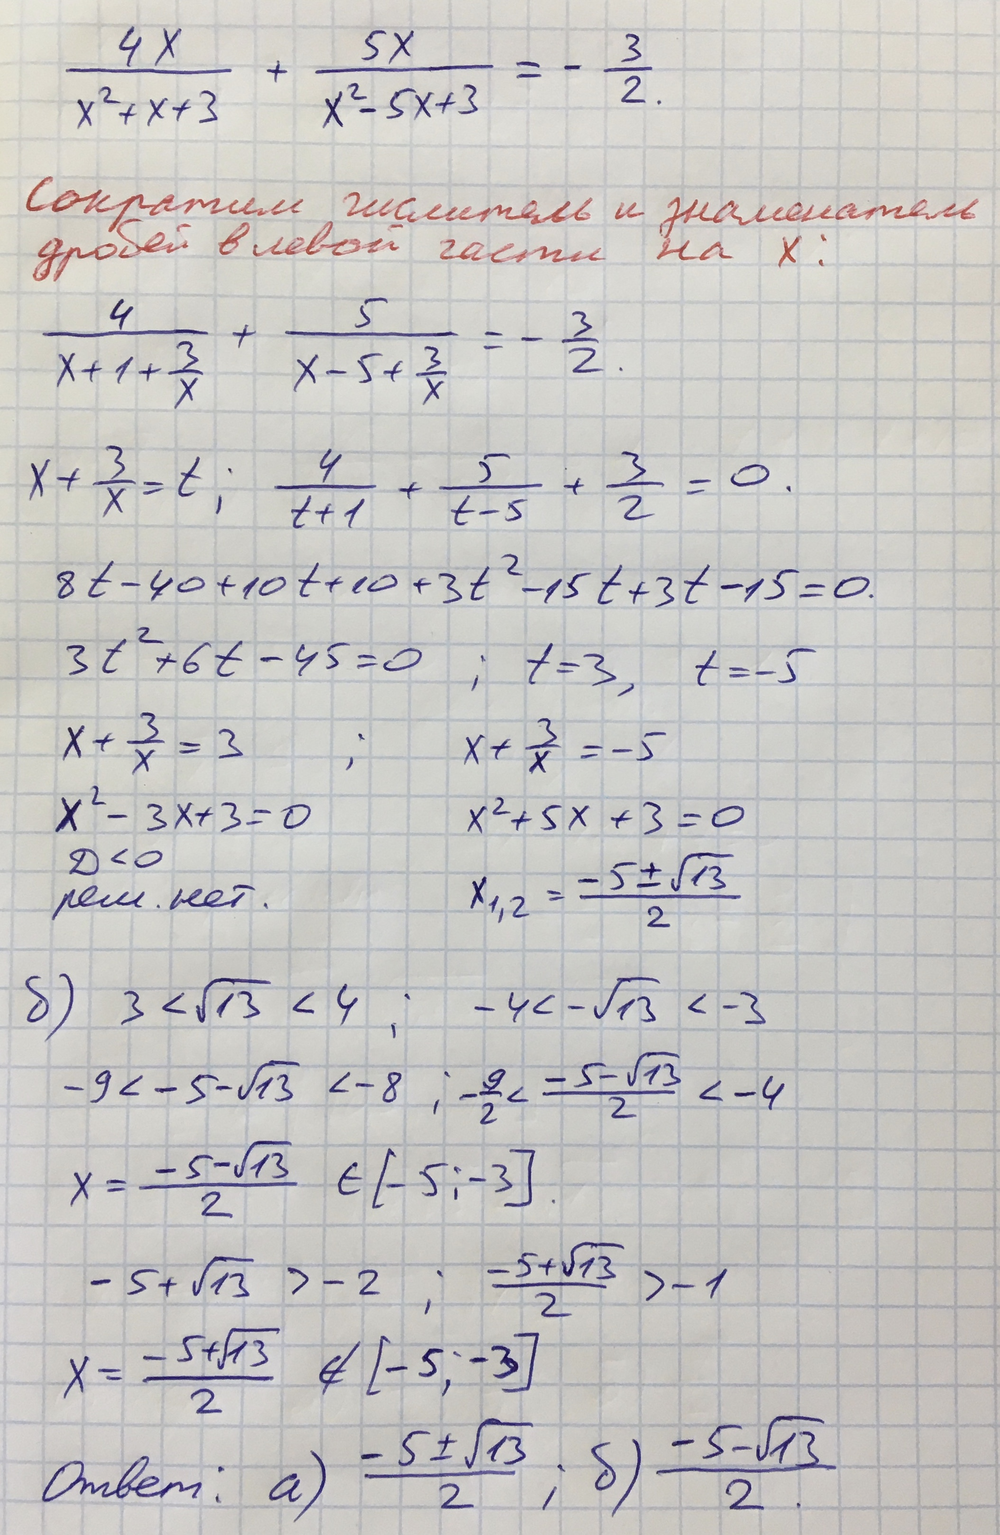 4x/(x²+x+3) + 5x/(x²-5x+3) = - 3/2.
Сократим числитель и знаменатель
дробей в левой части на x:
4/(x+1+3/x) + 5/(x-5+3/x) = - 3/2.
x+3/x=t; 4/(t+1) + 5/(t-5) + 3/2 = 0.
8t-40+10t+10+3t²-15t+3t-15=0.
3t²+6t-45=0 ; t=3, t=-5
x+3/x=3 ; x+3/x=-5
x²-3x+3=0 x²+5x+3=0
D<0
реш. нет. x₁,₂ = (-5±√13)/2
б) 3<√13<4; -4<-√13<-3
-9<-5-√13<-8; -9/2<(-5-√13)/2<-4
x=(-5-√13)/2 ∈[-5;-3].
-5+√13>-2; (-5+√13)/2>-1
x=(-5+√13)/2 ∉[-5;-3]
Ответ: а) (-5±√13)/2; б) (-5-√13)/2.